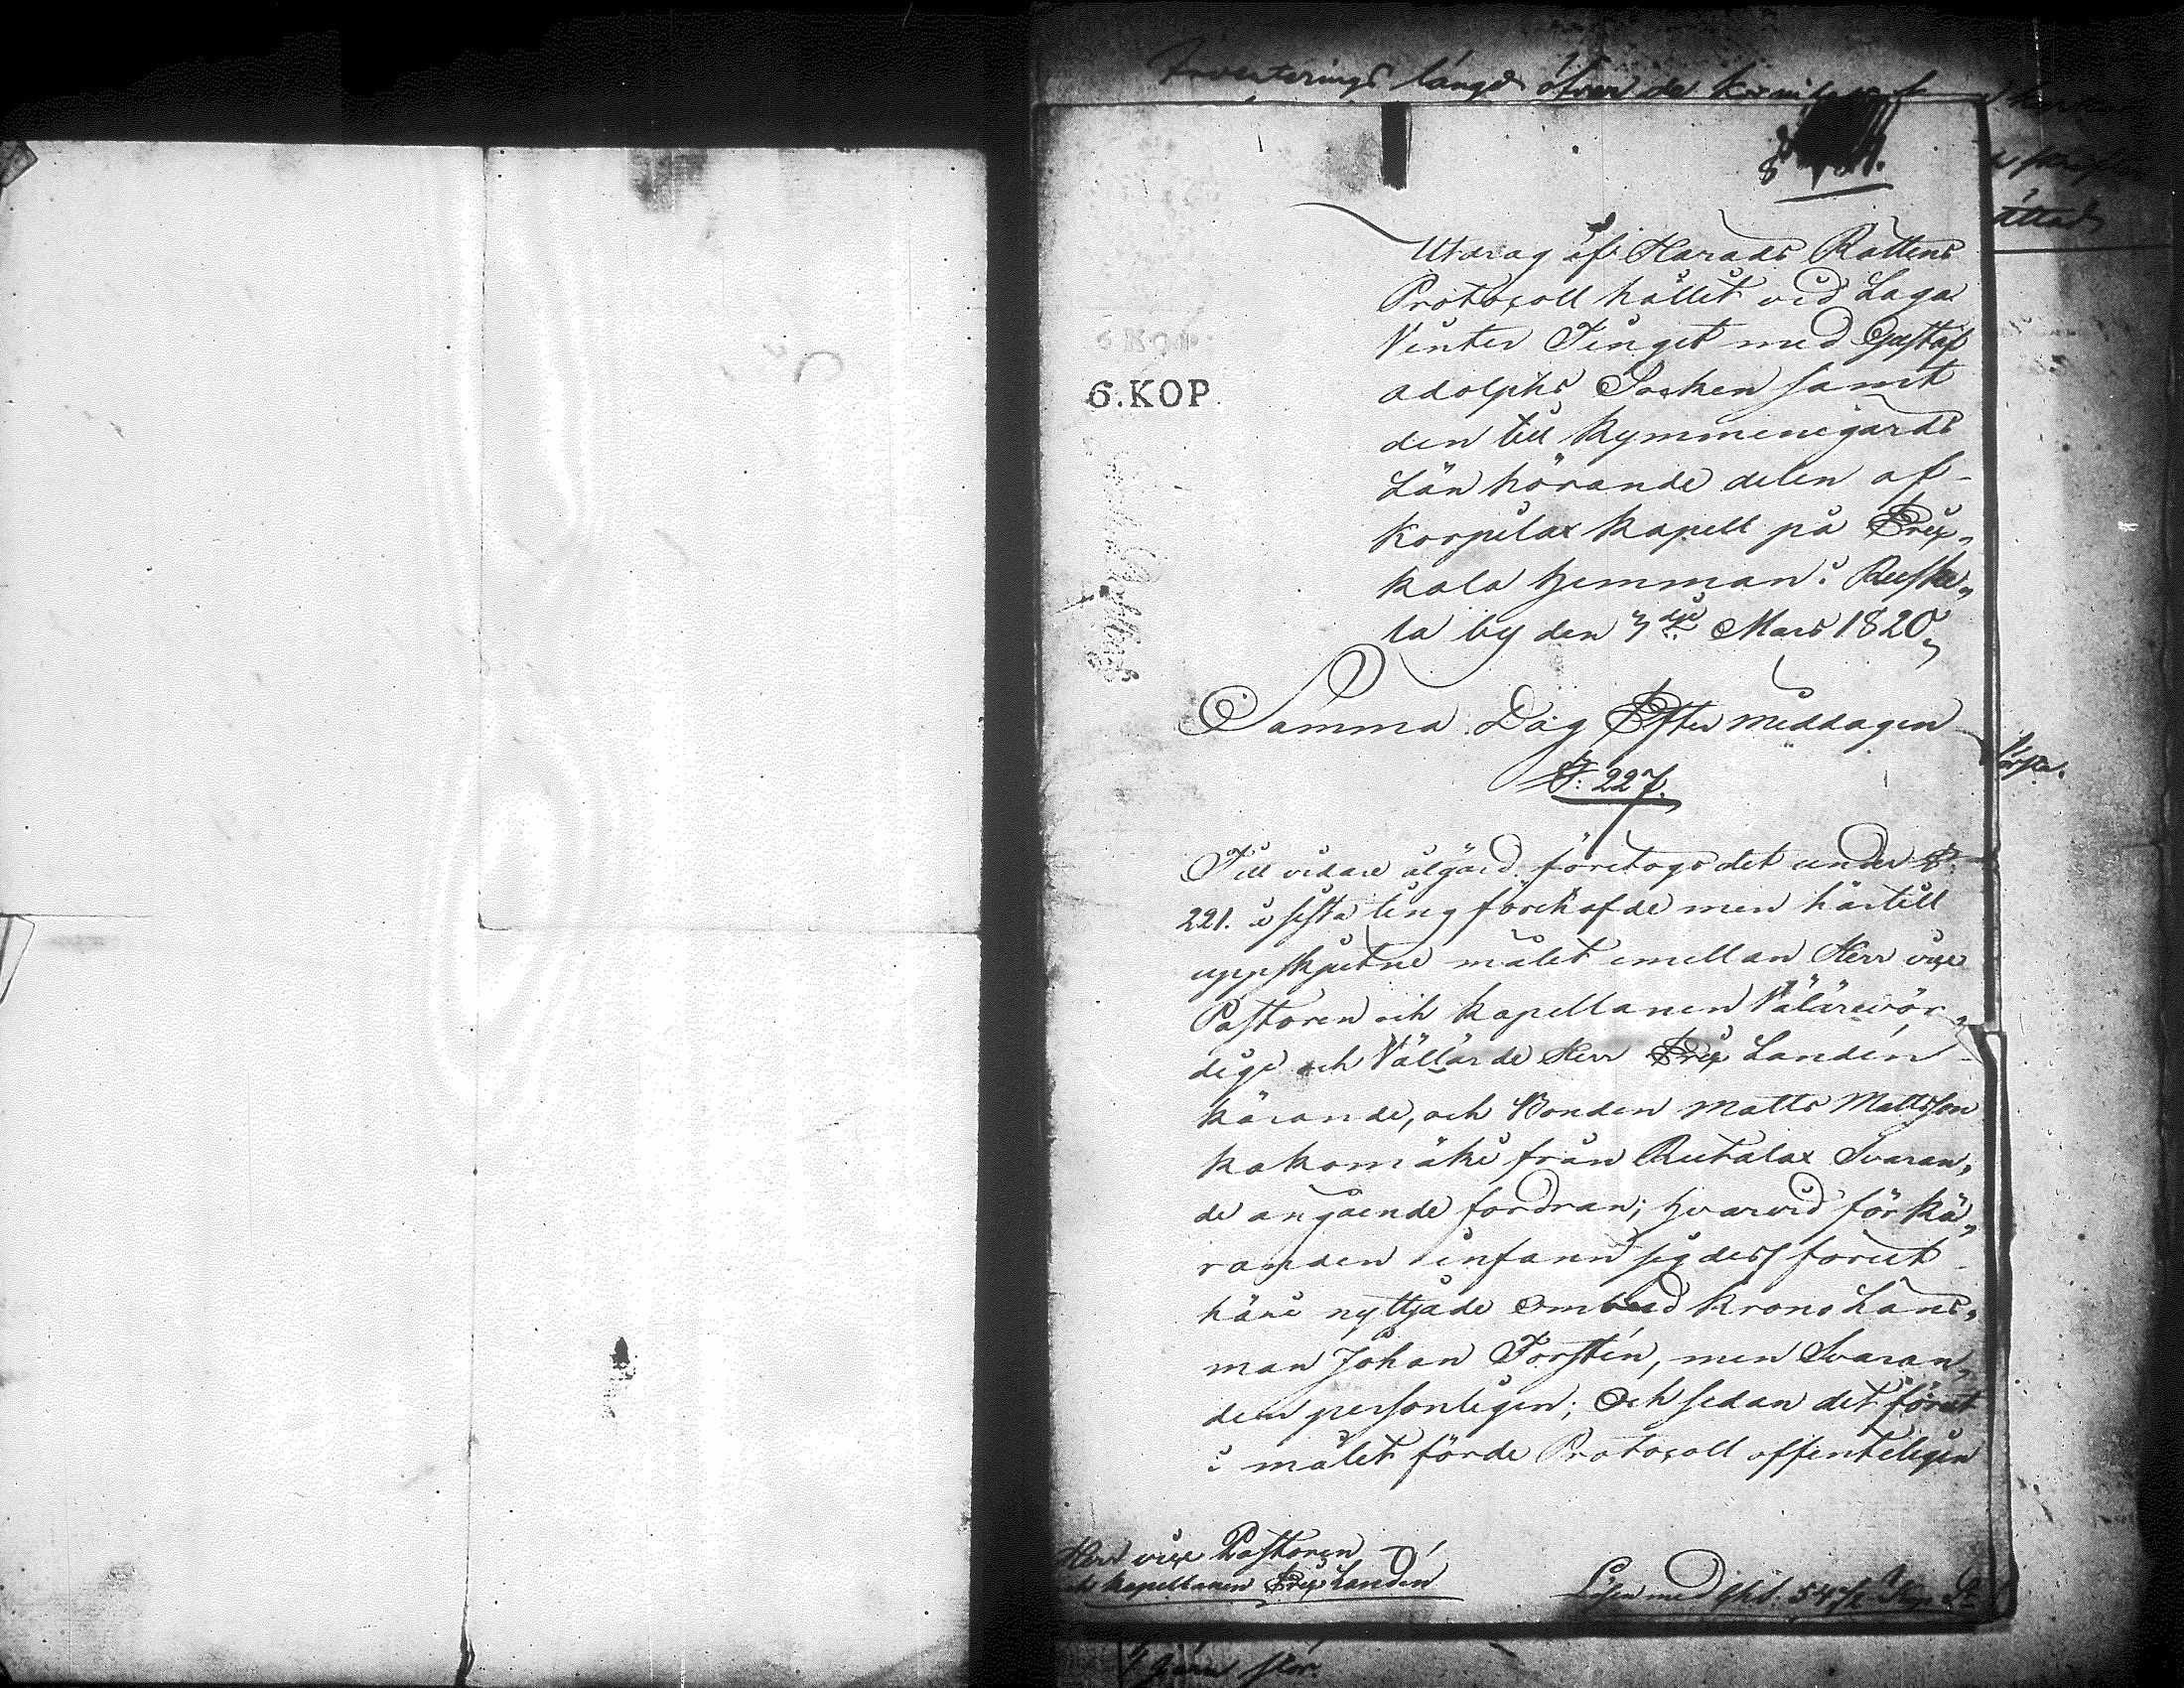 Inventerings längd öfver de
Utdrag af Härads Rättens
Protocoll hållit vid Laga
Vinter Tinget med Gustaf
adolphs Socken samt
den till Kymmenegårds
Län hörande delen af
Korpilax Kapell på Eric,,
kala hemman i Ruske,,
la by den 7dje Mars 1820,,
6.KOP
Samma Dag Efter middagen
§: 227.
Till vidare åtgärd företogs det under §
221. i sista ting förehafde men härtill
uppskjutne målet emellan Herr vice
Pastoren och Kapellanen Välärevör,,
dige och Vällärde Herr Eric Landén
Kärande, och Bonden Matts Mattsson
Kokomäki från Rutalax Svaran,,
de angående fordran; hvarvid för Kä,,
randen infann sig dess förut
häri nyttjade Ombud Krono Läns,,
man Johan Forstén, men Svaran,,
den personligen; Och sedan det förut
i målet förde Protocoll offenteligen
Herr vice Pastoren
och Kapellanen Eric Landén
Lösen med